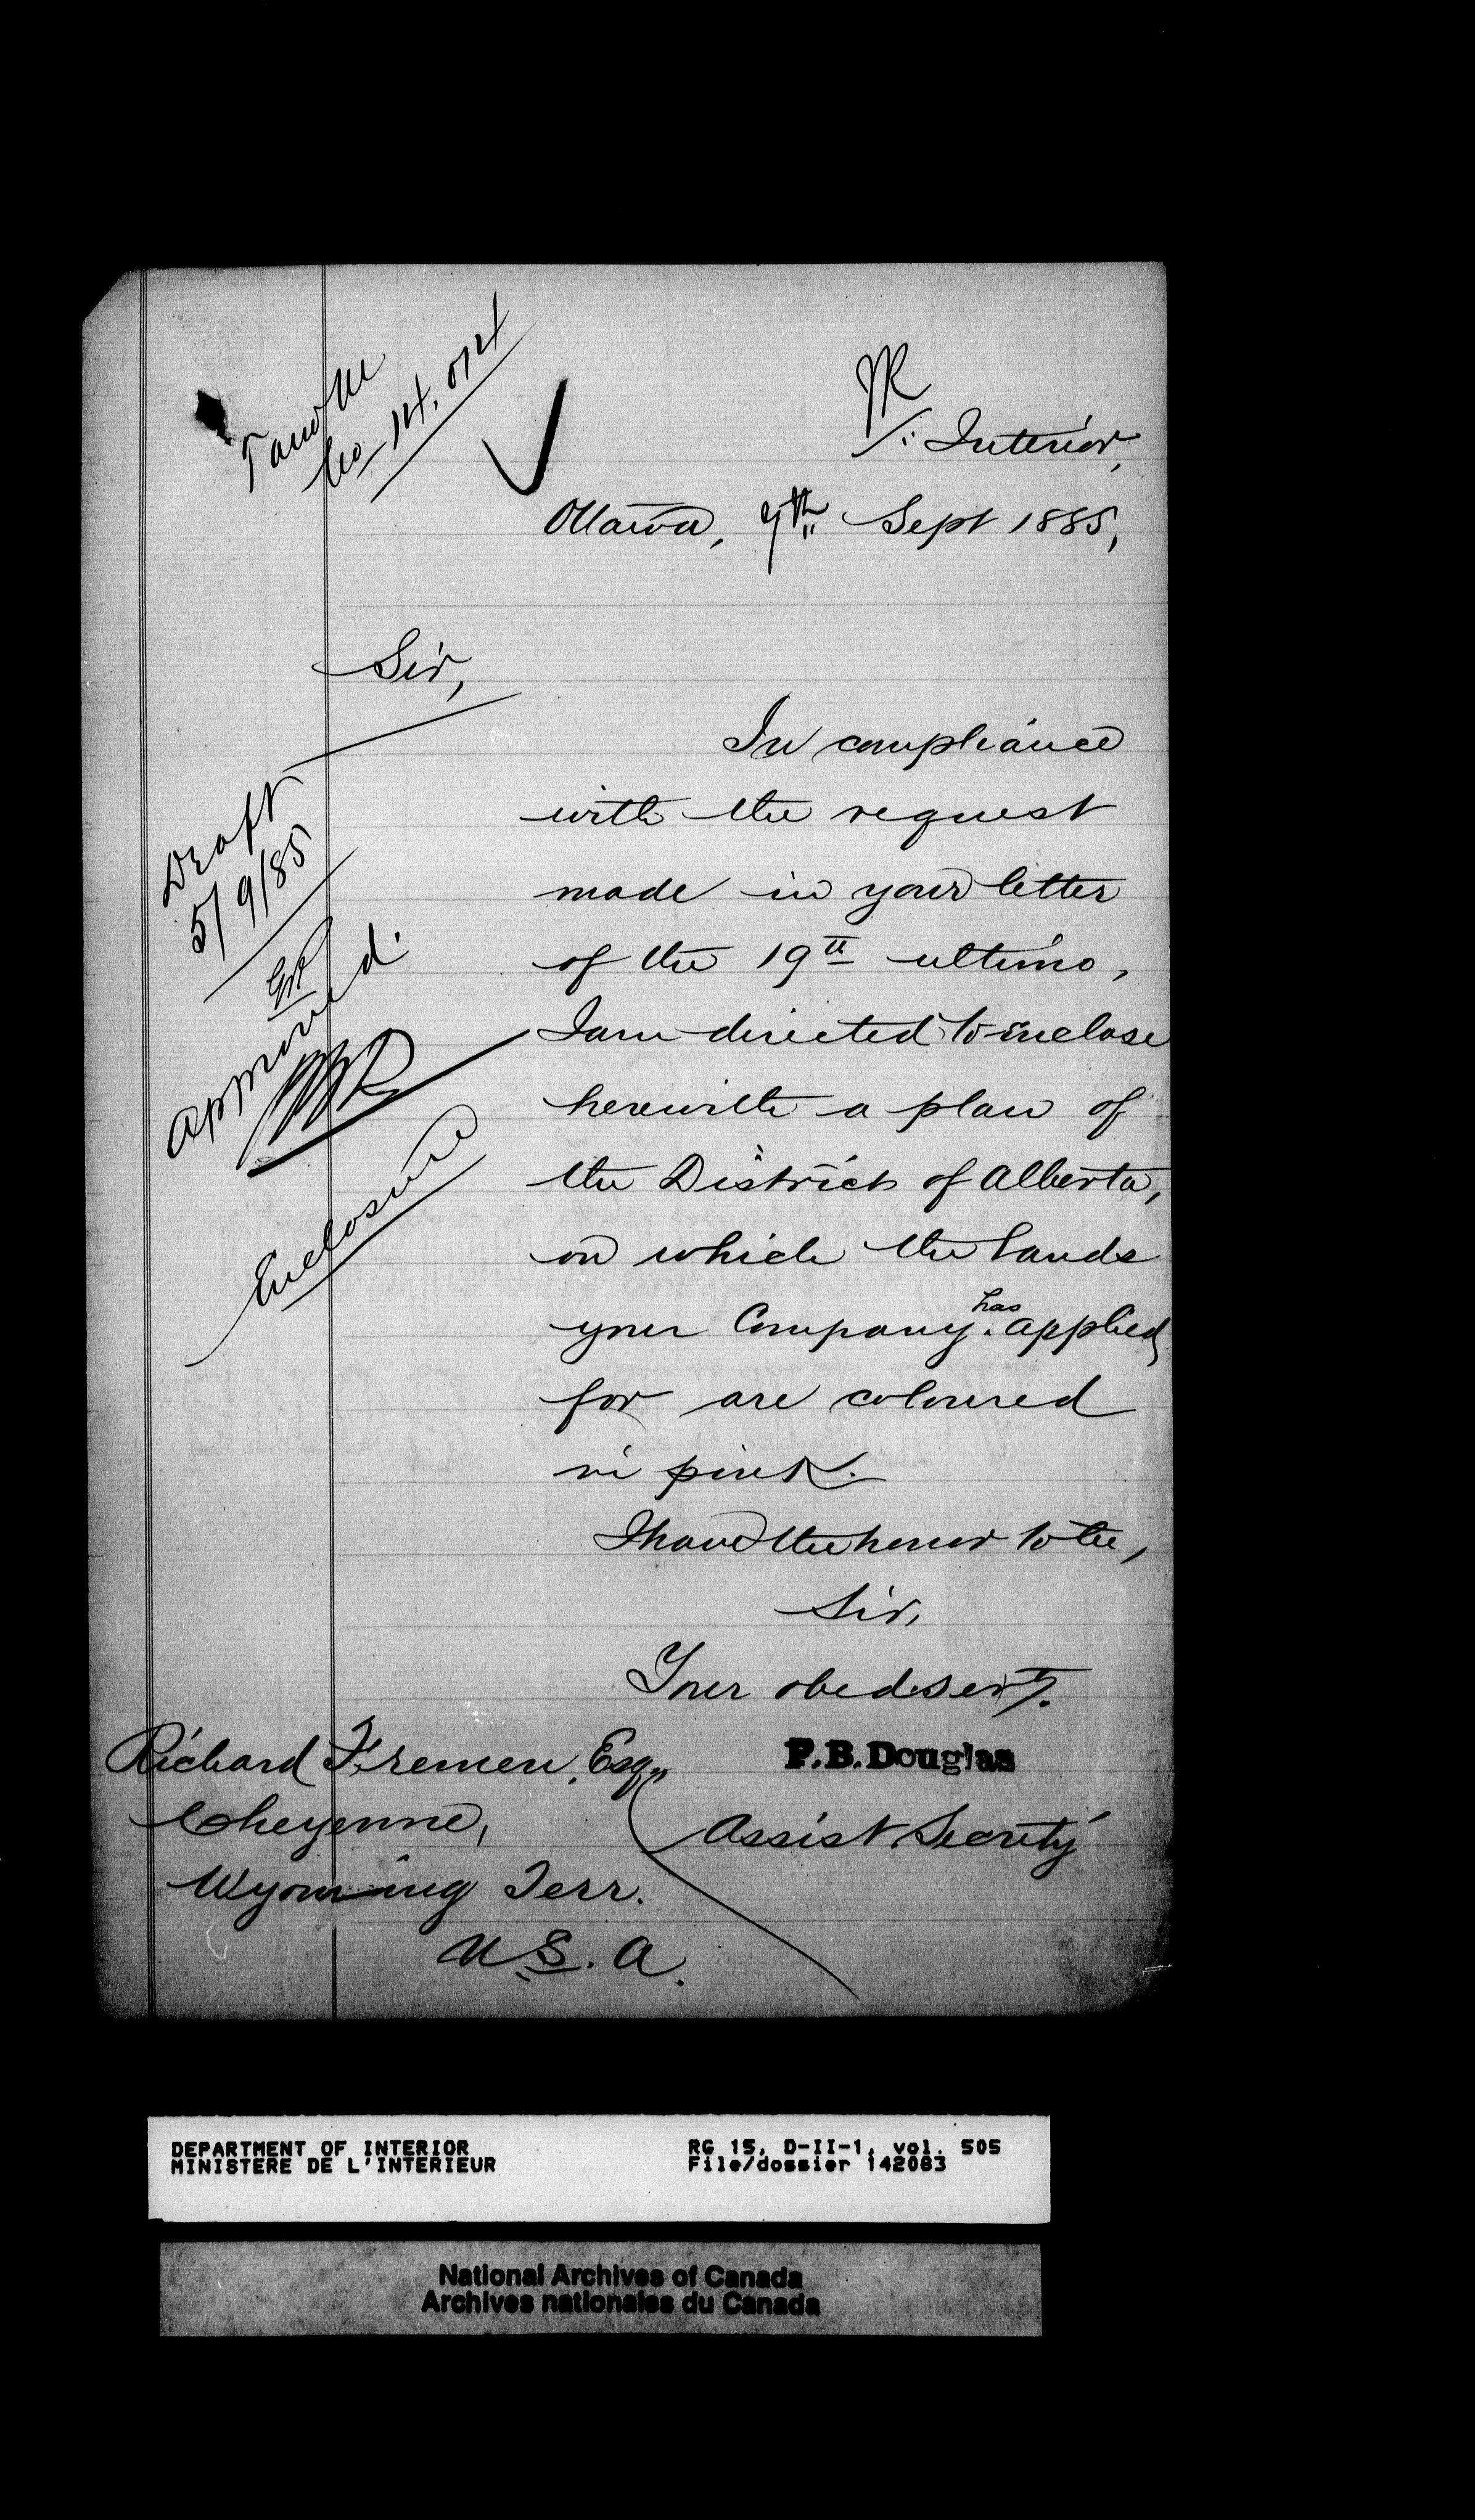 T and M
No 14,014
Interior,
Ottawa, 9th Sept 1885,
Sir,
Draft
5/9/85
Approved.
Enclosure
In compliance
with the request
made in your letter
of the 19th ultimo,
I am directed to inclose
herewith a plan of
the District of Alberta,
on which the lands
your Company has applied
for are coloured
in pink.
I have the honor to be,
Sir,
Your obed. servt.
P.B. Douglas
Assist Secrety
Richard Esq.,
Cheyenne,
Wyoming Terr.
U.S.A.
DEPARTMENT OF INTERIOR
MINISTERE DE L'INTERIEUR
RG 15, D-II-1, vol. 505
File/dossier 142083
National Archives of Canada
Archives nationales du Canada